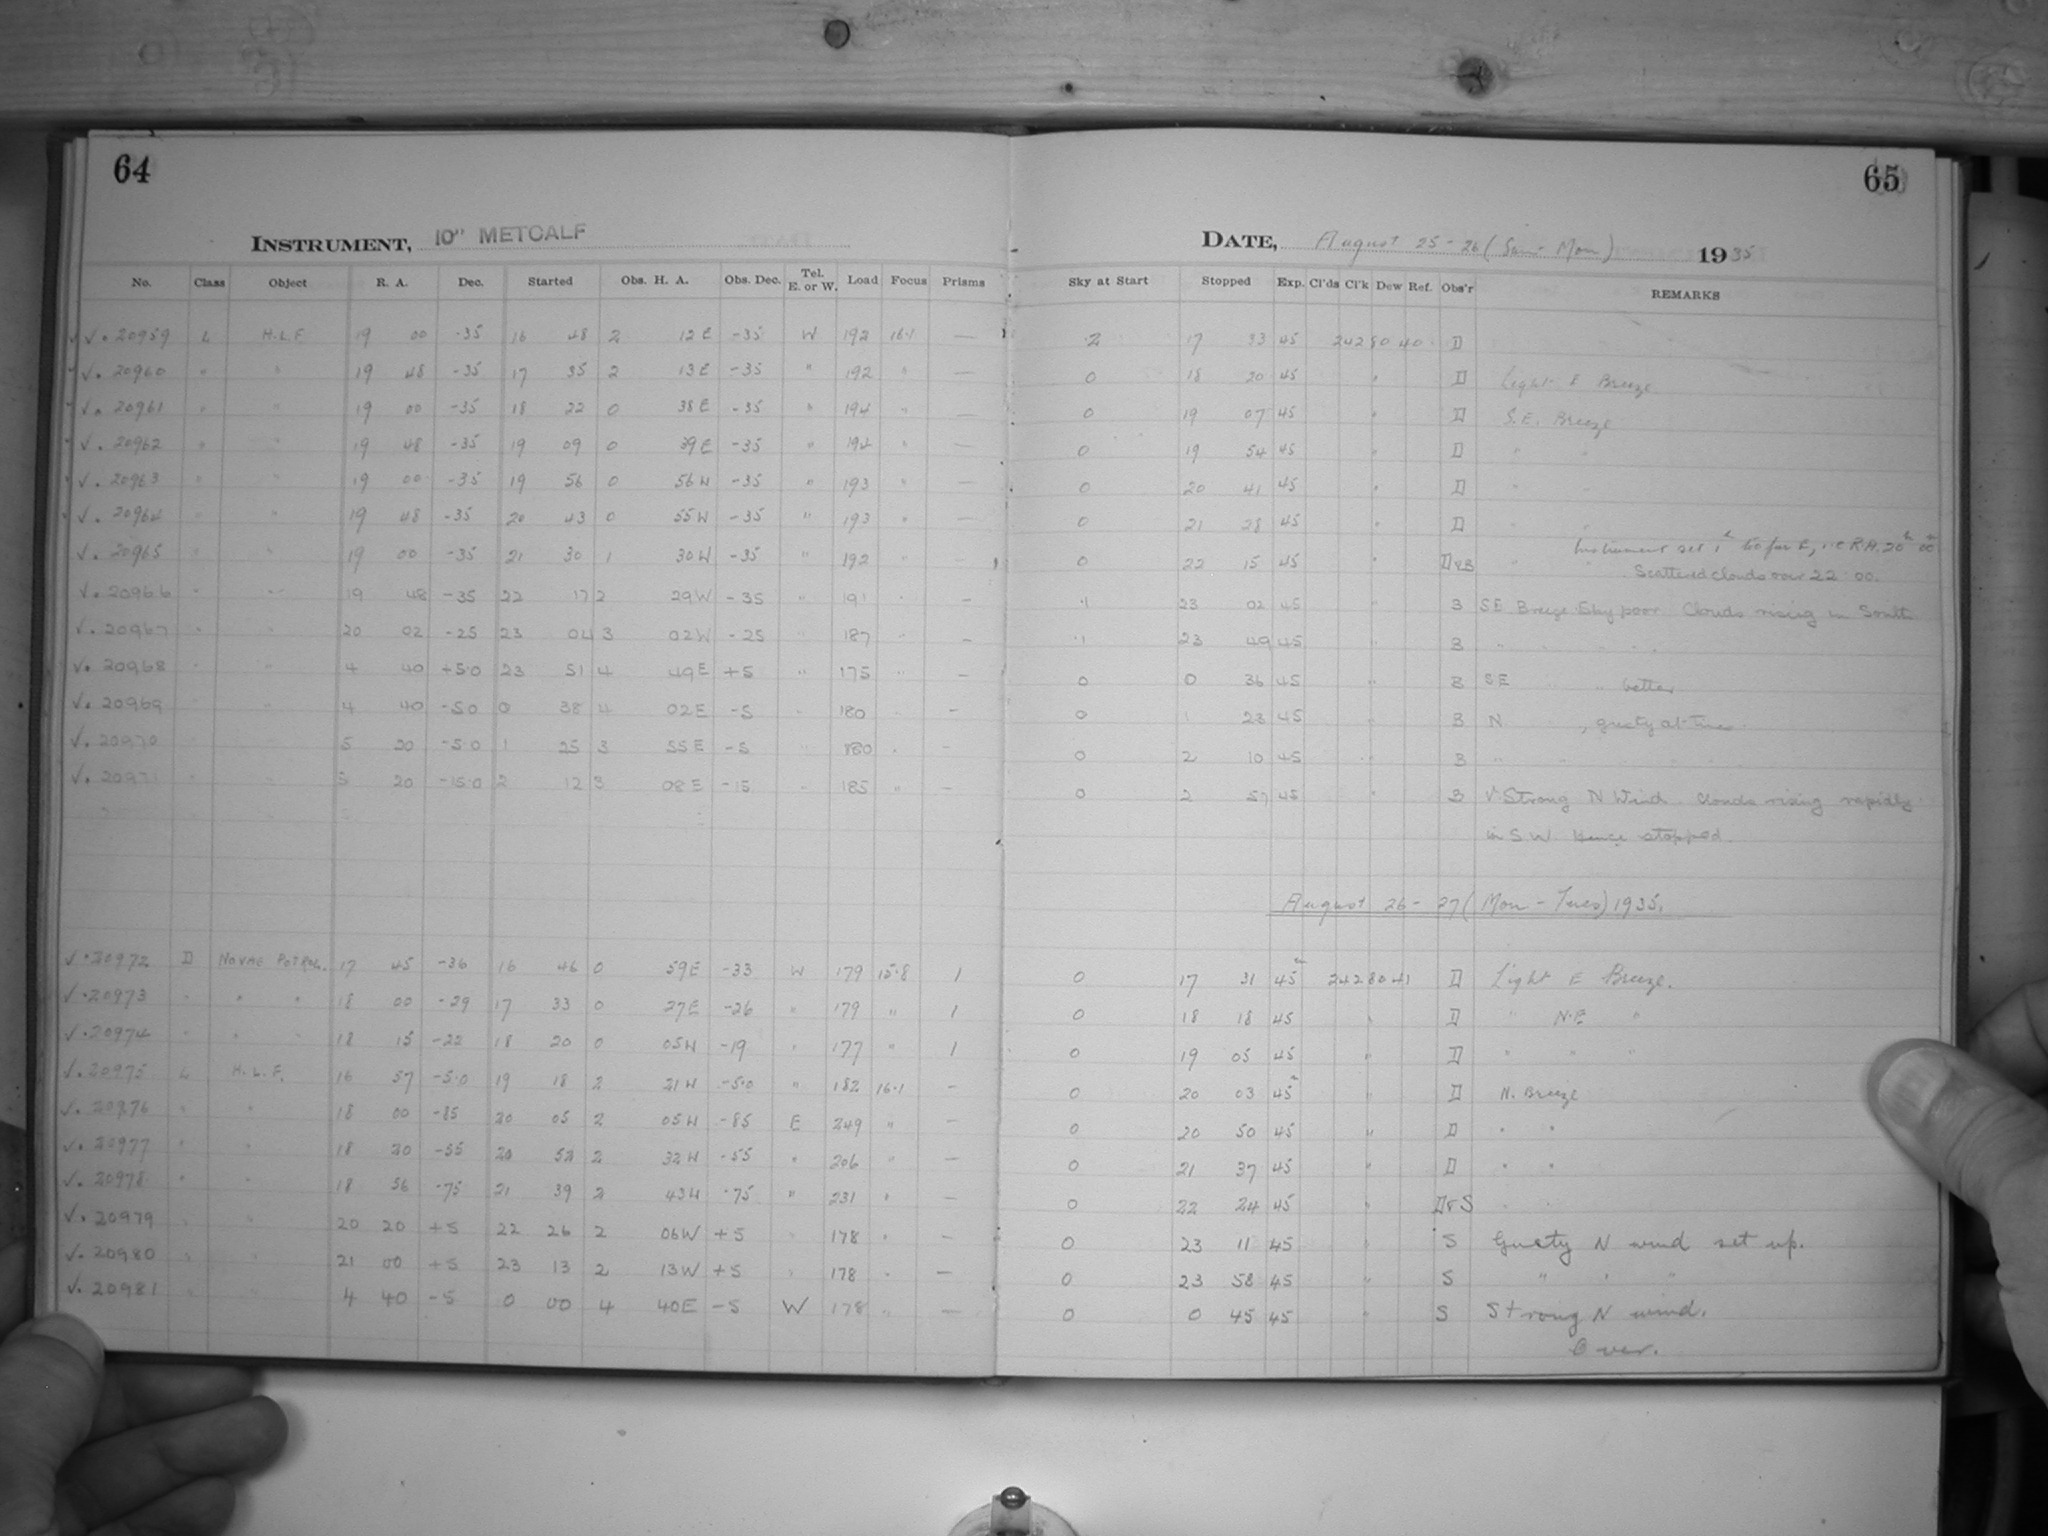 64
65
INSTRUMENT, 10" METCALF
DATE, August 25-26 (Sun-Mon) 1935
No. Class Object R. A. Dec. Started Obs. H. A. Obs. Dec. Tel. E. or W. Load Focus Prisms Sky at Start Stopped Exp. Cl'ds Cl'k Dew Ref. Obs'r REMARKS
√. 20959 L H.L.F 19 00 -35 16 48 2 12E -35 W 192 16.1 — 2 17 33 45 2428040 D
√. 20960 " " 19 48 -35 17 35 2 13E -35 " 192 " — 0 18 20 45 " D Light E Breeze
√. 20961 " " 19 00 -35 18 22 0 38E -35 " 194 " — 0 19 07 45 " D S.E. Breeze
√. 20962 " " 19 48 -35 19 09 0 39E -35 " 194 " — 0 19 54 45 " D " "
√. 20963 " " 19 00 -35 19 56 0 56W -35 " 193 " — 0 20 41 45 " D " "
√. 20964 " " 19 48 -35 20 43 0 55W -35 " 193 " — 0 21 28 45 " D " "
Instrument set 1h too far E, i.e R.A. 20h 00m
√. 20965 " " 19 00 -35 21 30 1 30W -35 " 192 " — 0 22 15 45 " D&B " Scattered clouds over 22 00.
√. 20966 " " 19 48 -35 22 17 2 29W -35 " 191 " — 1 23 02 45 " B SE Breeze Sky poor. Clouds rising in South
√. 20967 " " 20 02 -25 23 04 3 02W -25 " 187 " — 1 23 49 45 " B " " " " "
√. 20968 " " 4 40 +5.0 23 51 4 49E +5 " 175 " — 0 0 36 45 " B SE " " better
√. 20969 " " 4 40 -5.0 0 38 4 02E -5 " 180 " — 0 1 23 45 B N " , gusty at times.
√. 20970 5 20 -5.0 1 25 3 55E -5 " 180 " — 0 2 10 45 " B " "
√. 20971 " " 5 20 -15.0 2 12 3 08E -15 " 185 " — 0 2 57 45 " B √ Strong N Wind. Clouds rising rapidly
in SW Hence stopped.
August 26-27 (Mon-Tues) 1935.
√. 20972 D NOVAE PATROL. 17 45 -36 16 46 0 59E -33 W 179 15.8 1 0 17 31 45 2428041 D Light E Breeze.
√. 20973 " " " 18 00 -29 17 33 0 27E -26 " 179 " 1 0 18 18 45 " D " N.E "
√. 20974 " " " 18 15 -22 18 20 0 05W -19 " 177 " 1 0 19 05 45 " D " " "
√. 20975 L H.L.F. 16 57 -5.0 19 18 2 21W -5.0 " 182 16.1 — 0 20 03 45 " D N. Breeze
√. 20976 " " 18 00 -85 20 05 2 05W -85 E 249 " — 0 20 50 45 " D " "
√. 20977 " " 18 20 -55 20 52 2 32W -55 " 206 " — 0 21 37 45 " D " "
√. 20978 " " 18 56 -75 21 39 2 43W -75 " 231 " — 0 22 24 45 " D&S " "
√. 20979 " " 20 20 +5 22 26 2 06W +5 " 178 " — 0 23 11 45 " S Gusty N wind set up.
√. 20980 " " 21 00 +5 23 13 2 13W +5 " 178 " — 0 23 58 45 " S " " "
√. 20981 " " 4 40 -5 0 00 4 40E -5 W 178 " — 0 0 45 45 " S Strong N wind.
Over.